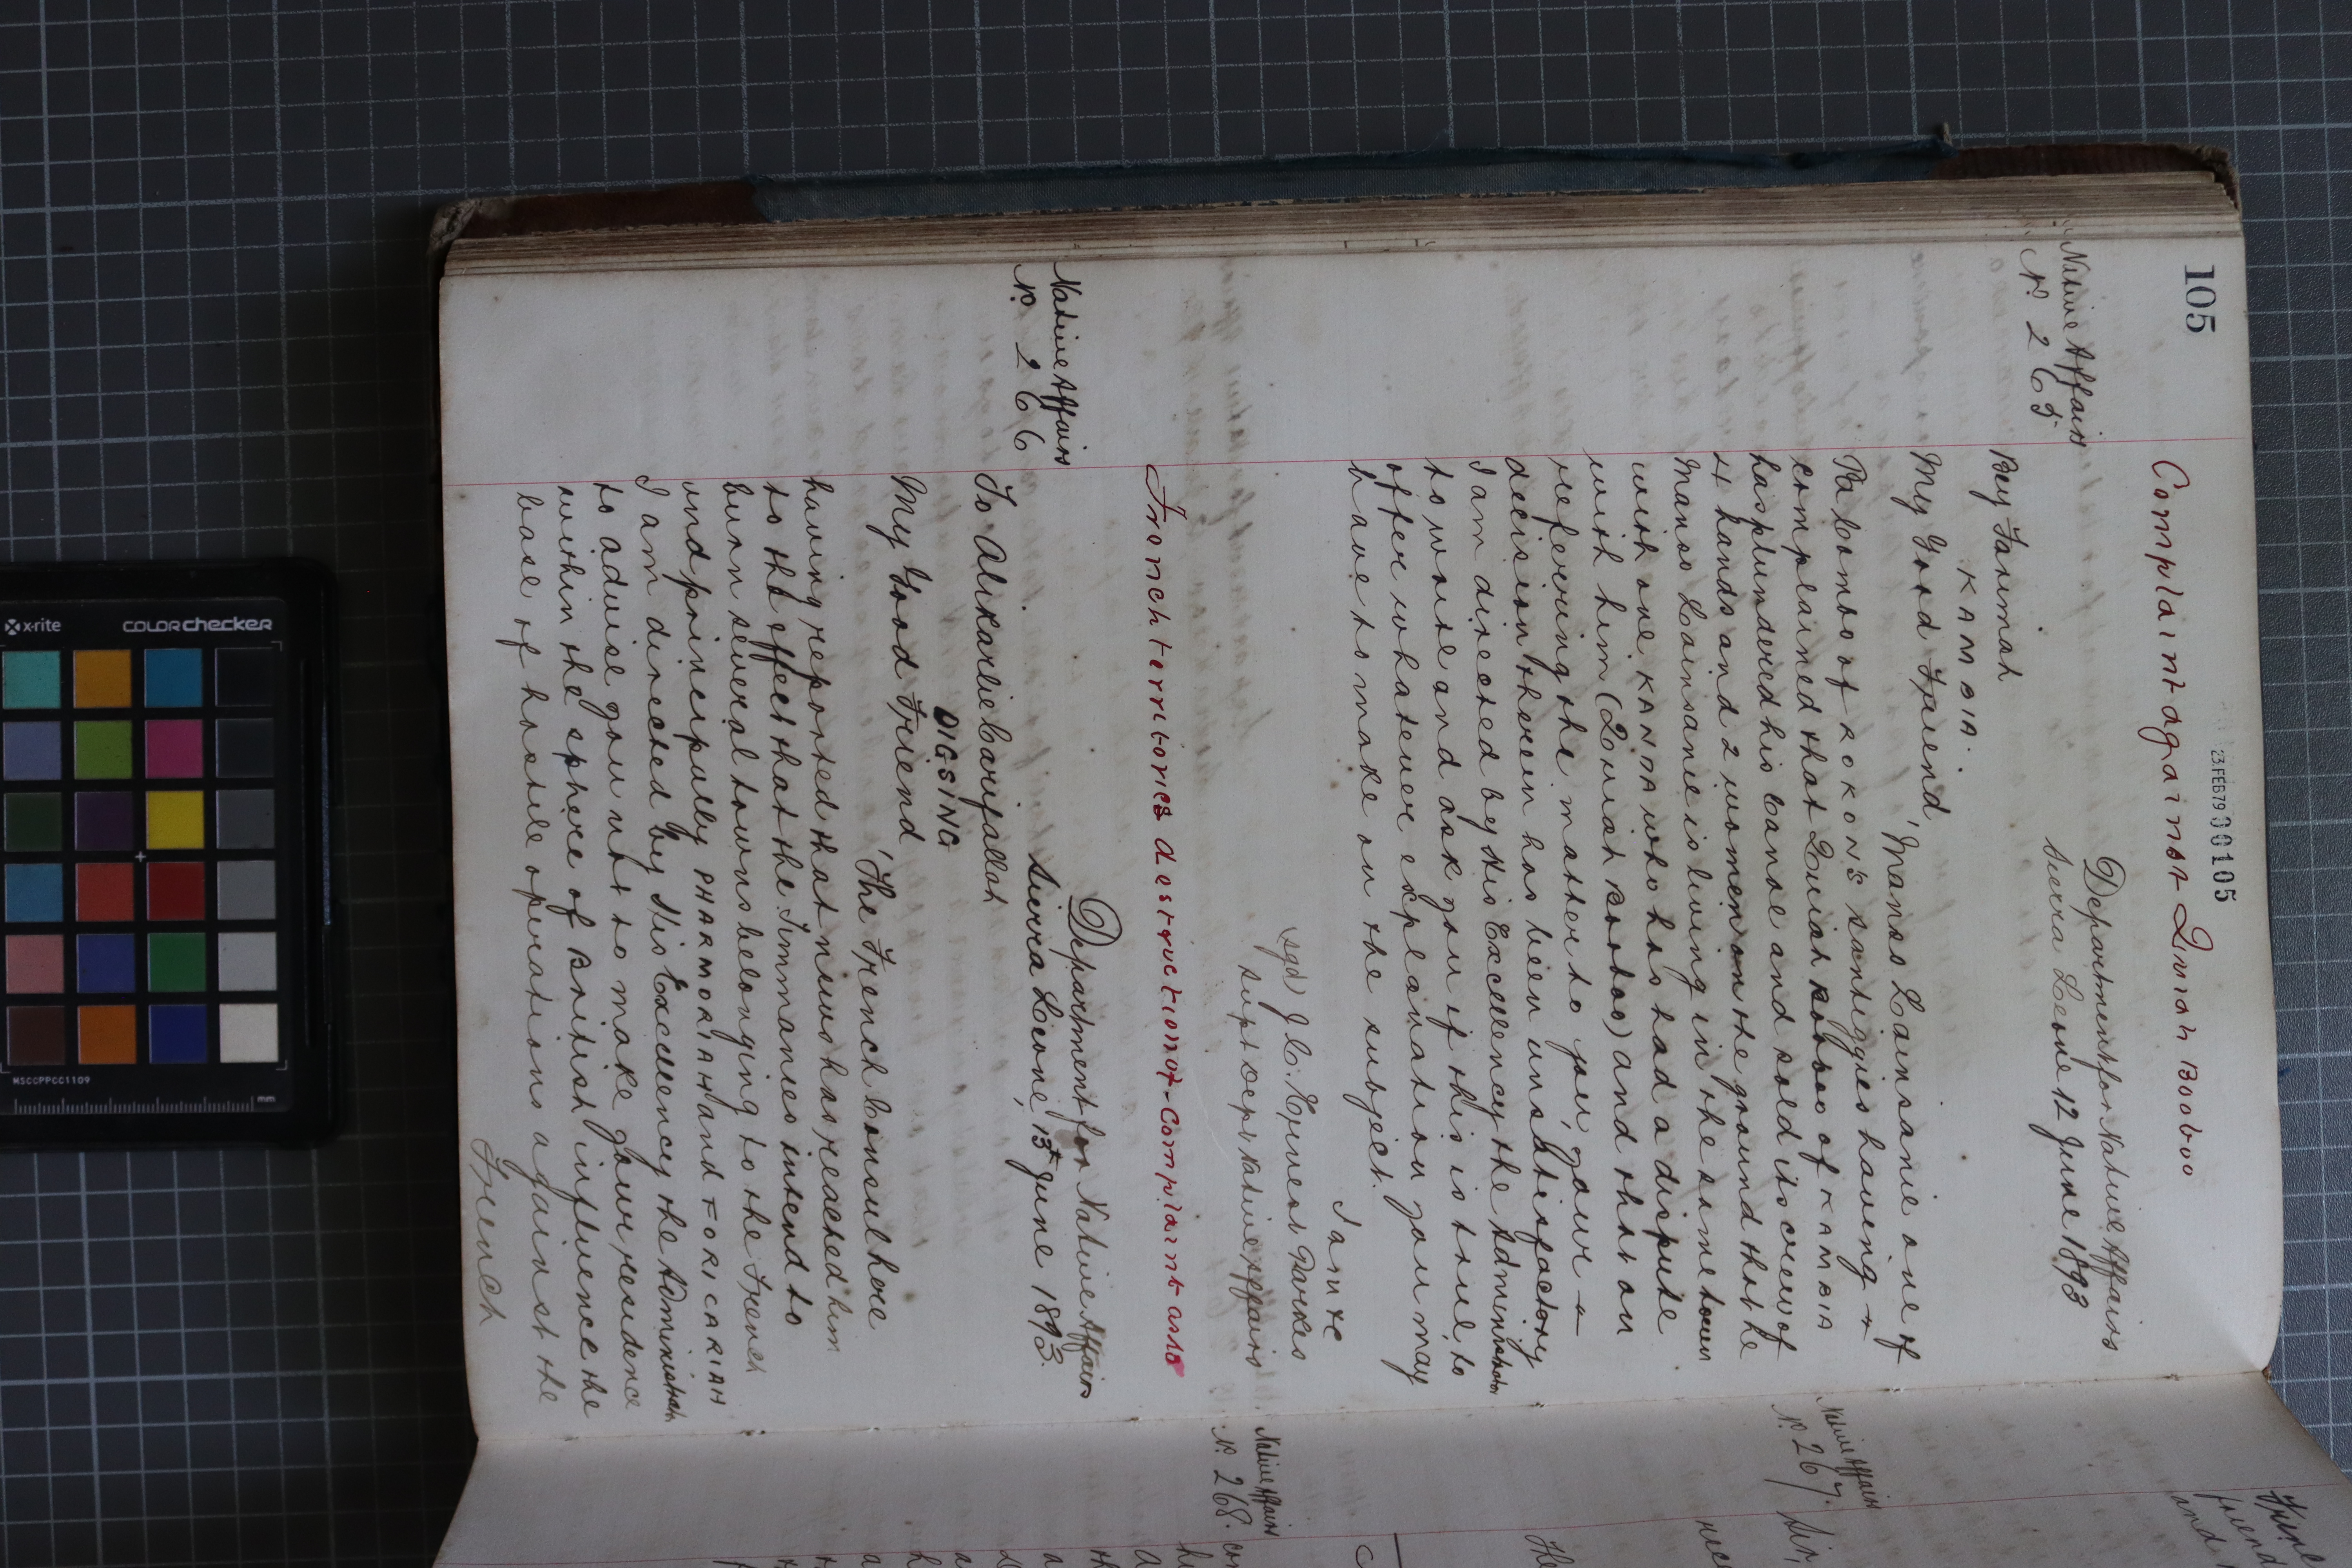 105
23.FEB79 00105
Complaint against Quiah Booboo
Native Affairs
No. 265
Department for Native Affairs
Sierra Leone 12 June 1893
Bey Farimah
KAMBIA.
My Good Friend,
Manso Lainsanie one of
Pa Combo of ROKON'S santiggies having
complained that Quiah Booboo of KAMBIA
has plundered his canoe and sold its crew of
4 hands and 2 women on the ground that he
Manso Lainsanie is living in the same town
with one KANDA who has had a dispute
with him (Quiah Booboo) and that on
referring the matter to you, your
decision thereon has been unsatisfactory
I am directed by His Excellency the Administrator
to write and ask you if this is true, to
offer whatever explanation you may
have to make on the subject.
I am &c
(sgd) J. C. Ernest Parkes
Supt Dept Native Affairs
French territories destruction of - Complaint as to
Native Affairs
No. 266
Department for Native Affairs
Sierra Leone, 13th June 1893.
To Alikarlie Carifallah
DIGSING
My Good Friend,
The French Consul here
having reported that news has reached him
to the effect that the Timmanies intend to
burn several towns belonging to the French
and principally PHARMORIAH and FORICARIAH
I am directed by His Excellency the Administrator
to advise you not to make your residence
within the sphere of British influence the
base of hostile operations against the
French
Native Affairs
No. 267.
Sir,
Native Affairs
No. 268.
and